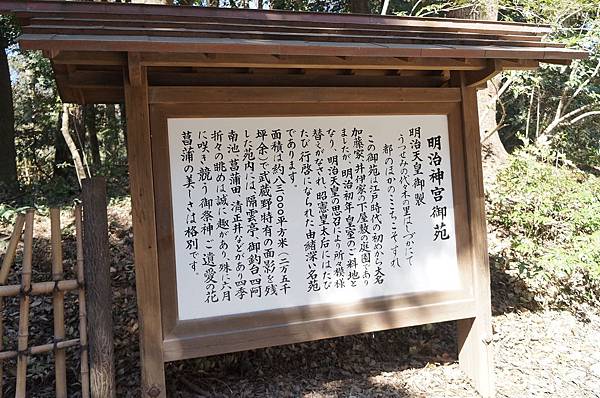 明治神宮御苑
明治天皇御製
うつせみの代々木の里はしづかにて
都のほかのここちこそすれ
この御苑は江戸時代の初めから大名
加藤家、井伊家の下屋敷の庭園であり
ましたが、明治初年皇室のご料地と
なり、明治天皇の思召により所々模様
替えがなされ、昭憲皇太后にはたびた
び行啓になられた由緒深い名苑
であります。
面積は約八三〇〇〇平方米(二万五千
坪余)で武蔵野特有の面影を残
した苑内には、隔雲亭、御釣台、四阿、
南池、菖蒲田、清正井などがあり四季
折々の眺めは誠に趣があり、殊に六月
に咲き競う御祭神ご遺愛の花
菖蒲の美しさは格別です。